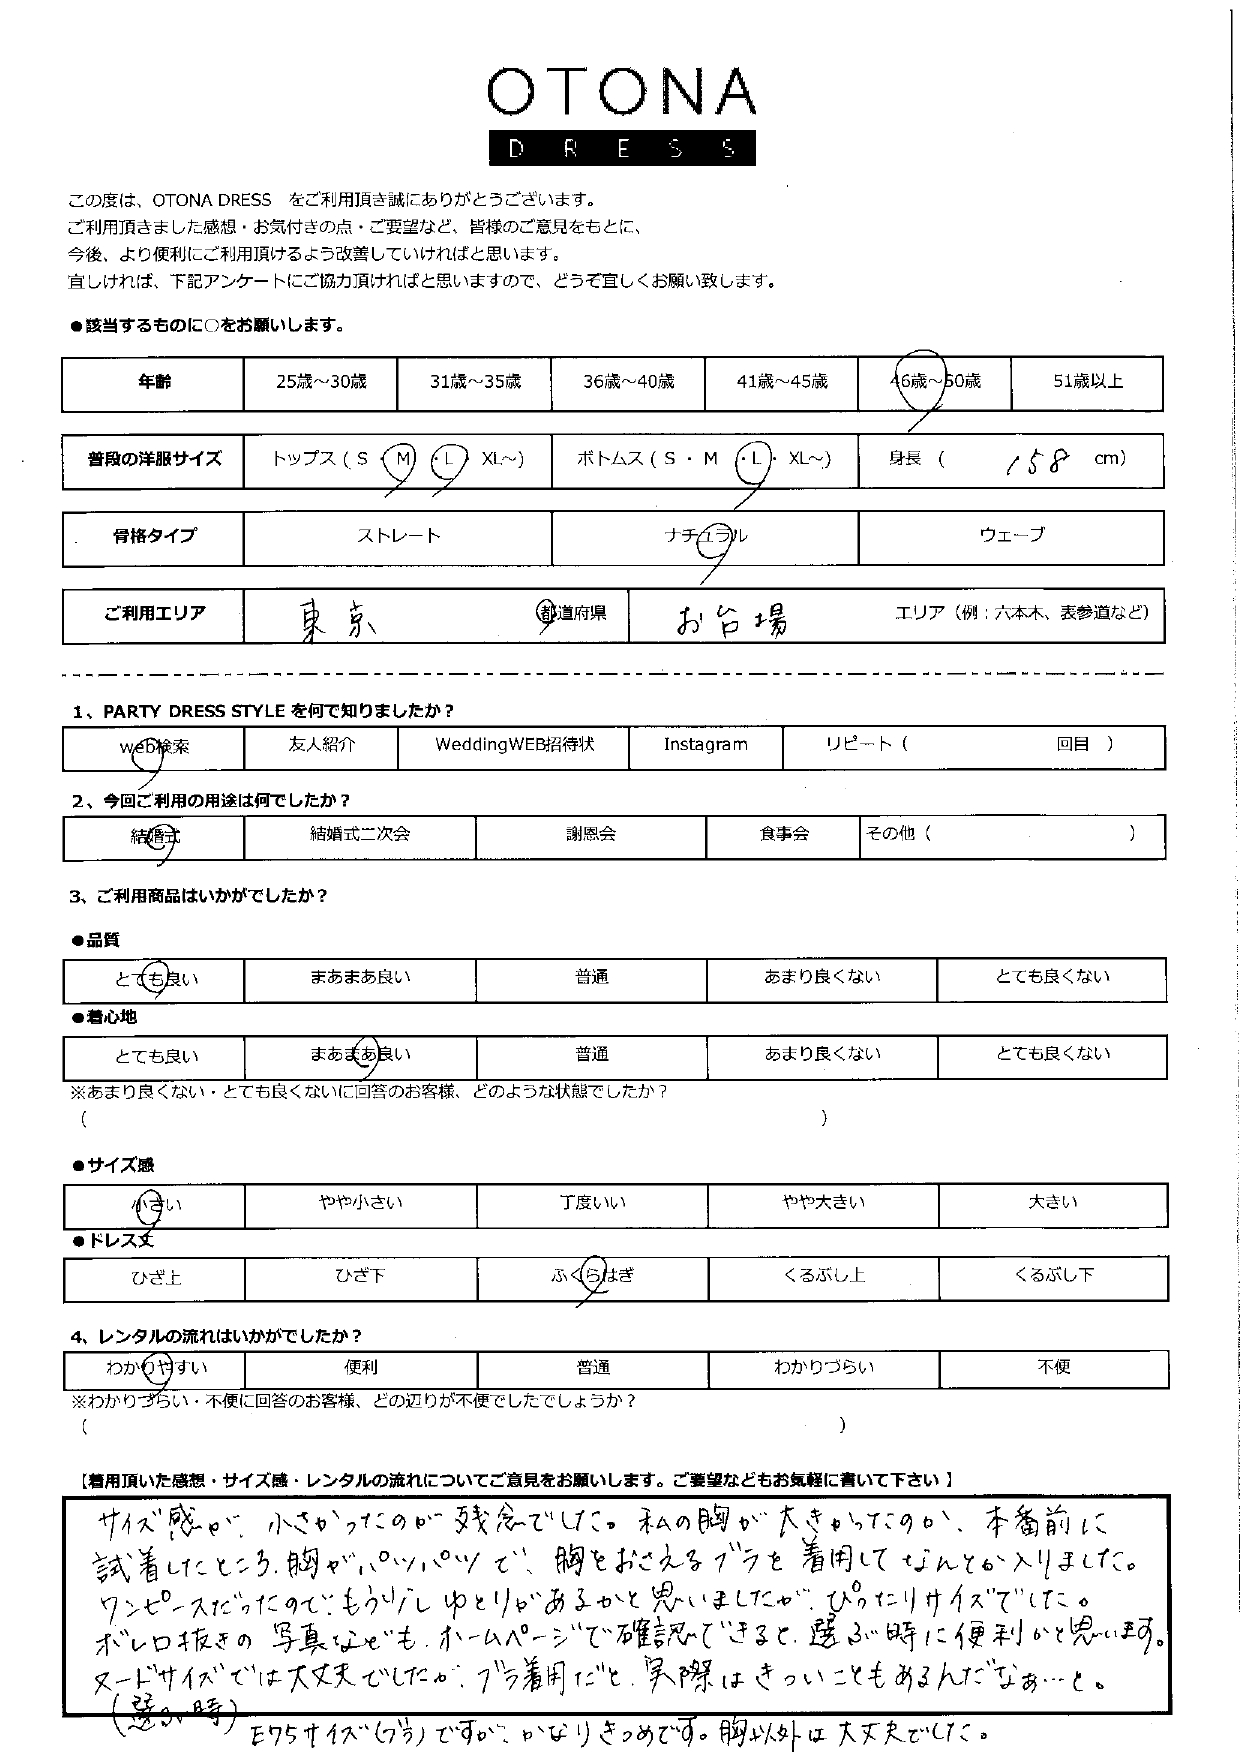 OTONA
DRESS
この度は、OTONA DRESS をご利用頂き誠にありがとうございます。
ご利用頂きました感想・お気付きの点・ご要望など、皆様のご意見をもとに、
今後、より便利にご利用頂けるよう改善していければと思います。
宜しければ、下記アンケートにご協力頂ければと思いますので、どうぞ宜しくお願い致します。
●該当するものに○をお願いします。
年齢 25歳～30歳 31歳～35歳 36歳～40歳 41歳～45歳 46歳～50歳 51歳以上
普段の洋服サイズ トップス ( S ・ M ・ L ・ XL～) ボトムス ( S ・ M ・ L ・ XL～) 身長 ( 158 cm)
骨格タイプ ストレート ナチュラル ウェーブ
ご利用エリア 東京 都道府県 お台場 エリア（例：六本木、表参道など）
1、PARTY DRESS STYLE を何で知りましたか？
web検索 友人紹介 WeddingWEB招待状 Instagram リピート ( 回目 )
2、今回ご利用の用途は何でしたか？
結婚式 結婚式二次会 謝恩会 食事会 その他 ( )
3、ご利用商品はいかがでしたか？
●品質
とても良い まあまあ良い 普通 あまり良くない とても良くない
●着心地
とても良い まあまあ良い 普通 あまり良くない とても良くない
※あまり良くない・とても良くないに回答のお客様、どのような状態でしたか？
( )
●サイズ感
小さい やや小さい 丁度いい やや大きい 大きい
●ドレス丈
ひざ上 ひざ下 ふくらはぎ くるぶし上 くるぶし下
4、レンタルの流れはいかがでしたか？
わかりやすい 便利 普通 わかりづらい 不便
※わかりづらい・不便に回答のお客様、どの辺りが不便でしたでしょうか？
( )
【着用頂いた感想・サイズ感・レンタルの流れについてご意見をお願いします。ご要望などもお気軽に書いて下さい 】
サイズ感が、小さかったのが残念でした。私の胸が大きかったのか、本番前に
試着したところ、胸がパツパツで、胸をおさえるブラを着用してなんとか入りました。
ワンピースだったので、もう少しゆとりがあるかと思いましたが、ぴったりサイズでした。
ボレロ抜きの写真なども、ホームページで確認できると、選ぶ時に便利かと思います。
ヌードサイズでは大丈夫でしたが、ブラ着用だと、実際はきついこともあるんだなぁ…と。
(選ぶ時)
E75サイズ(ブラ)ですが、かなりきつめです。胸以外は大丈夫でした。